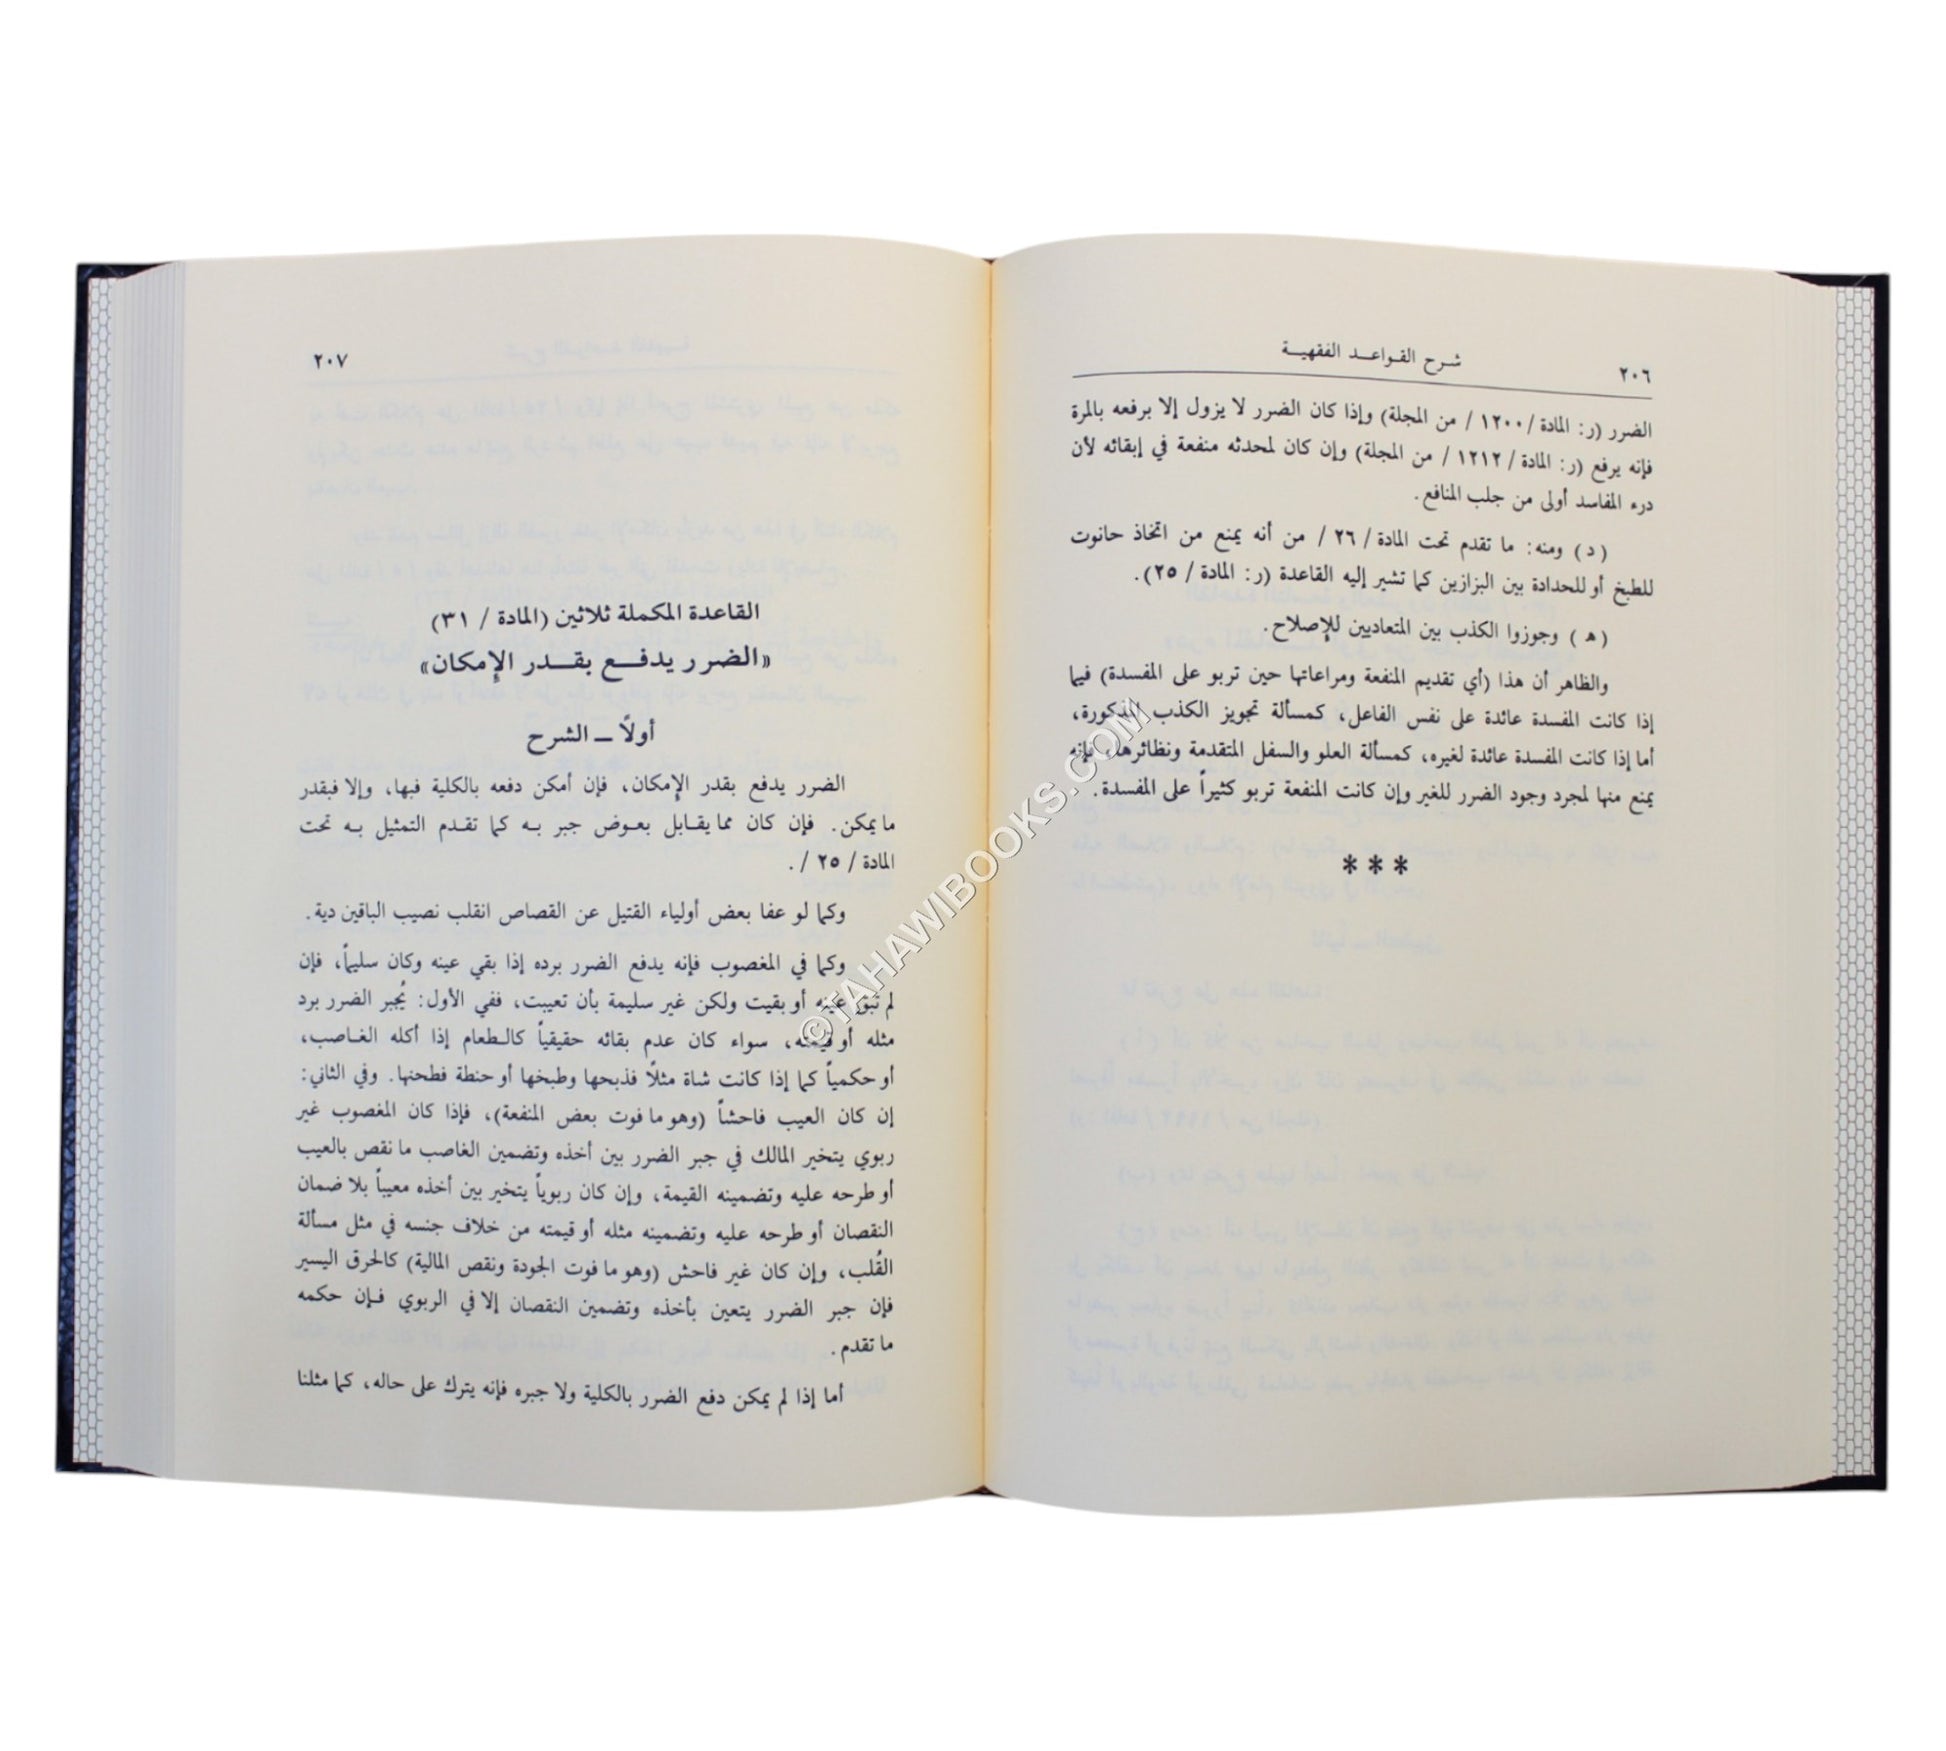 ٢٠٦
شرح القواعد الفقهية
الضرر (ر: المادة / ١٢٠٠ / من المجلة) وإذا كان الضرر لا يزول إلا برفعه بالمرة
فإنه يرفع (ر: المادة / ١٢١٢ / من المجلة) وإن كان لمحدثه منفعة في إبقائه لأن
درء المفاسد أولى من جلب المنافع.
(د) ومنه: ما تقدم تحت المادة / ٢٦ / من أنه يمنع من اتخاذ حانوت
للطبخ أو للحدادة بين البزازين كما تشير إليه القاعدة (ر: المادة / ٢٥).
(ﻫ) وجوزوا الكذب بين المتعاديين للإصلاح.
والظاهر أن هذا (أي تقديم المنفعة ومراعاتها حين تربو على المفسدة) فيما
إذا كانت المفسدة عائدة على نفس الفاعل، كمسألة تجويز الكذب المذكورة،
أما إذا كانت المفسدة عائدة لغيره، كمسألة العلو والسفل المتقدمة ونظائرها، فإنه
يمنع منها لمجرد وجود الضرر للغير وإن كانت المنفعة تربو كثيراً على المفسدة.
***
٢٠٧
القاعدة المكملة ثلاثين (المادة / ٣١)
«الضرر يدفع بقدر الإمكان»
أولاً ــ الشرح
الضرر يدفع بقدر الإمكان، فإن أمكن دفعه بالكلية فبها، وإلا فبقدر
ما يمكن. فإن كان مما يقابل بعوض جبر به كما تقدم التمثيل به تحت
المادة / ٢٥ /.
وكما لو عفا بعض أولياء القتيل عن القصاص انقلب نصيب الباقين دية.
وكما في المغصوب فإنه يدفع الضرر برده إذا بقي عينه وكان سليماً، فإن
لم تبق عينه أو بقيت ولكن غير سليمة بأن تعيبت، ففي الأول: يُجبر الضرر برد
مثله أو قيمته، سواء كان عدم بقائه حقيقياً كالطعام إذا أكله الغاصب،
أو حكمياً كما إذا كانت شاة مثلًا فذبحها وطبخها أو حنطة فطحنها. وفي الثاني:
إن كان العيب فاحشاً (وهو ما فوت بعض المنفعة)، فإذا كان المغصوب غير
ربوي يتخير المالك في جبر الضرر بين أخذه وتضمين الغاصب ما نقص بالعيب
أو طرحه عليه وتضمينه القيمة، وإن كان ربوياً يتخير بين أخذه معيباً بلا ضمان
النقصان أو طرحه عليه وتضمينه مثله أو قيمته من خلاف جنسه في مثل مسألة
القُلب، وإن كان غير فاحش (وهو ما فوت الجودة ونقص المالية) كالخرق اليسير
فإن جبر الضرر يتعين بأخذه وتضمين النقصان إلا في الربوي فإن حكمه
ما تقدم.
أما إذا لم يمكن دفع الضرر بالكلية ولا جبره فإنه يترك على حاله، كما مثلنا
©TAHAWIBOOKS.COM